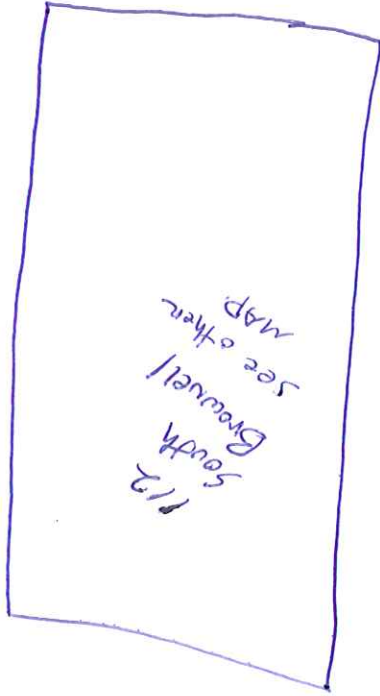 112
South
Brownell
See other
MAP.